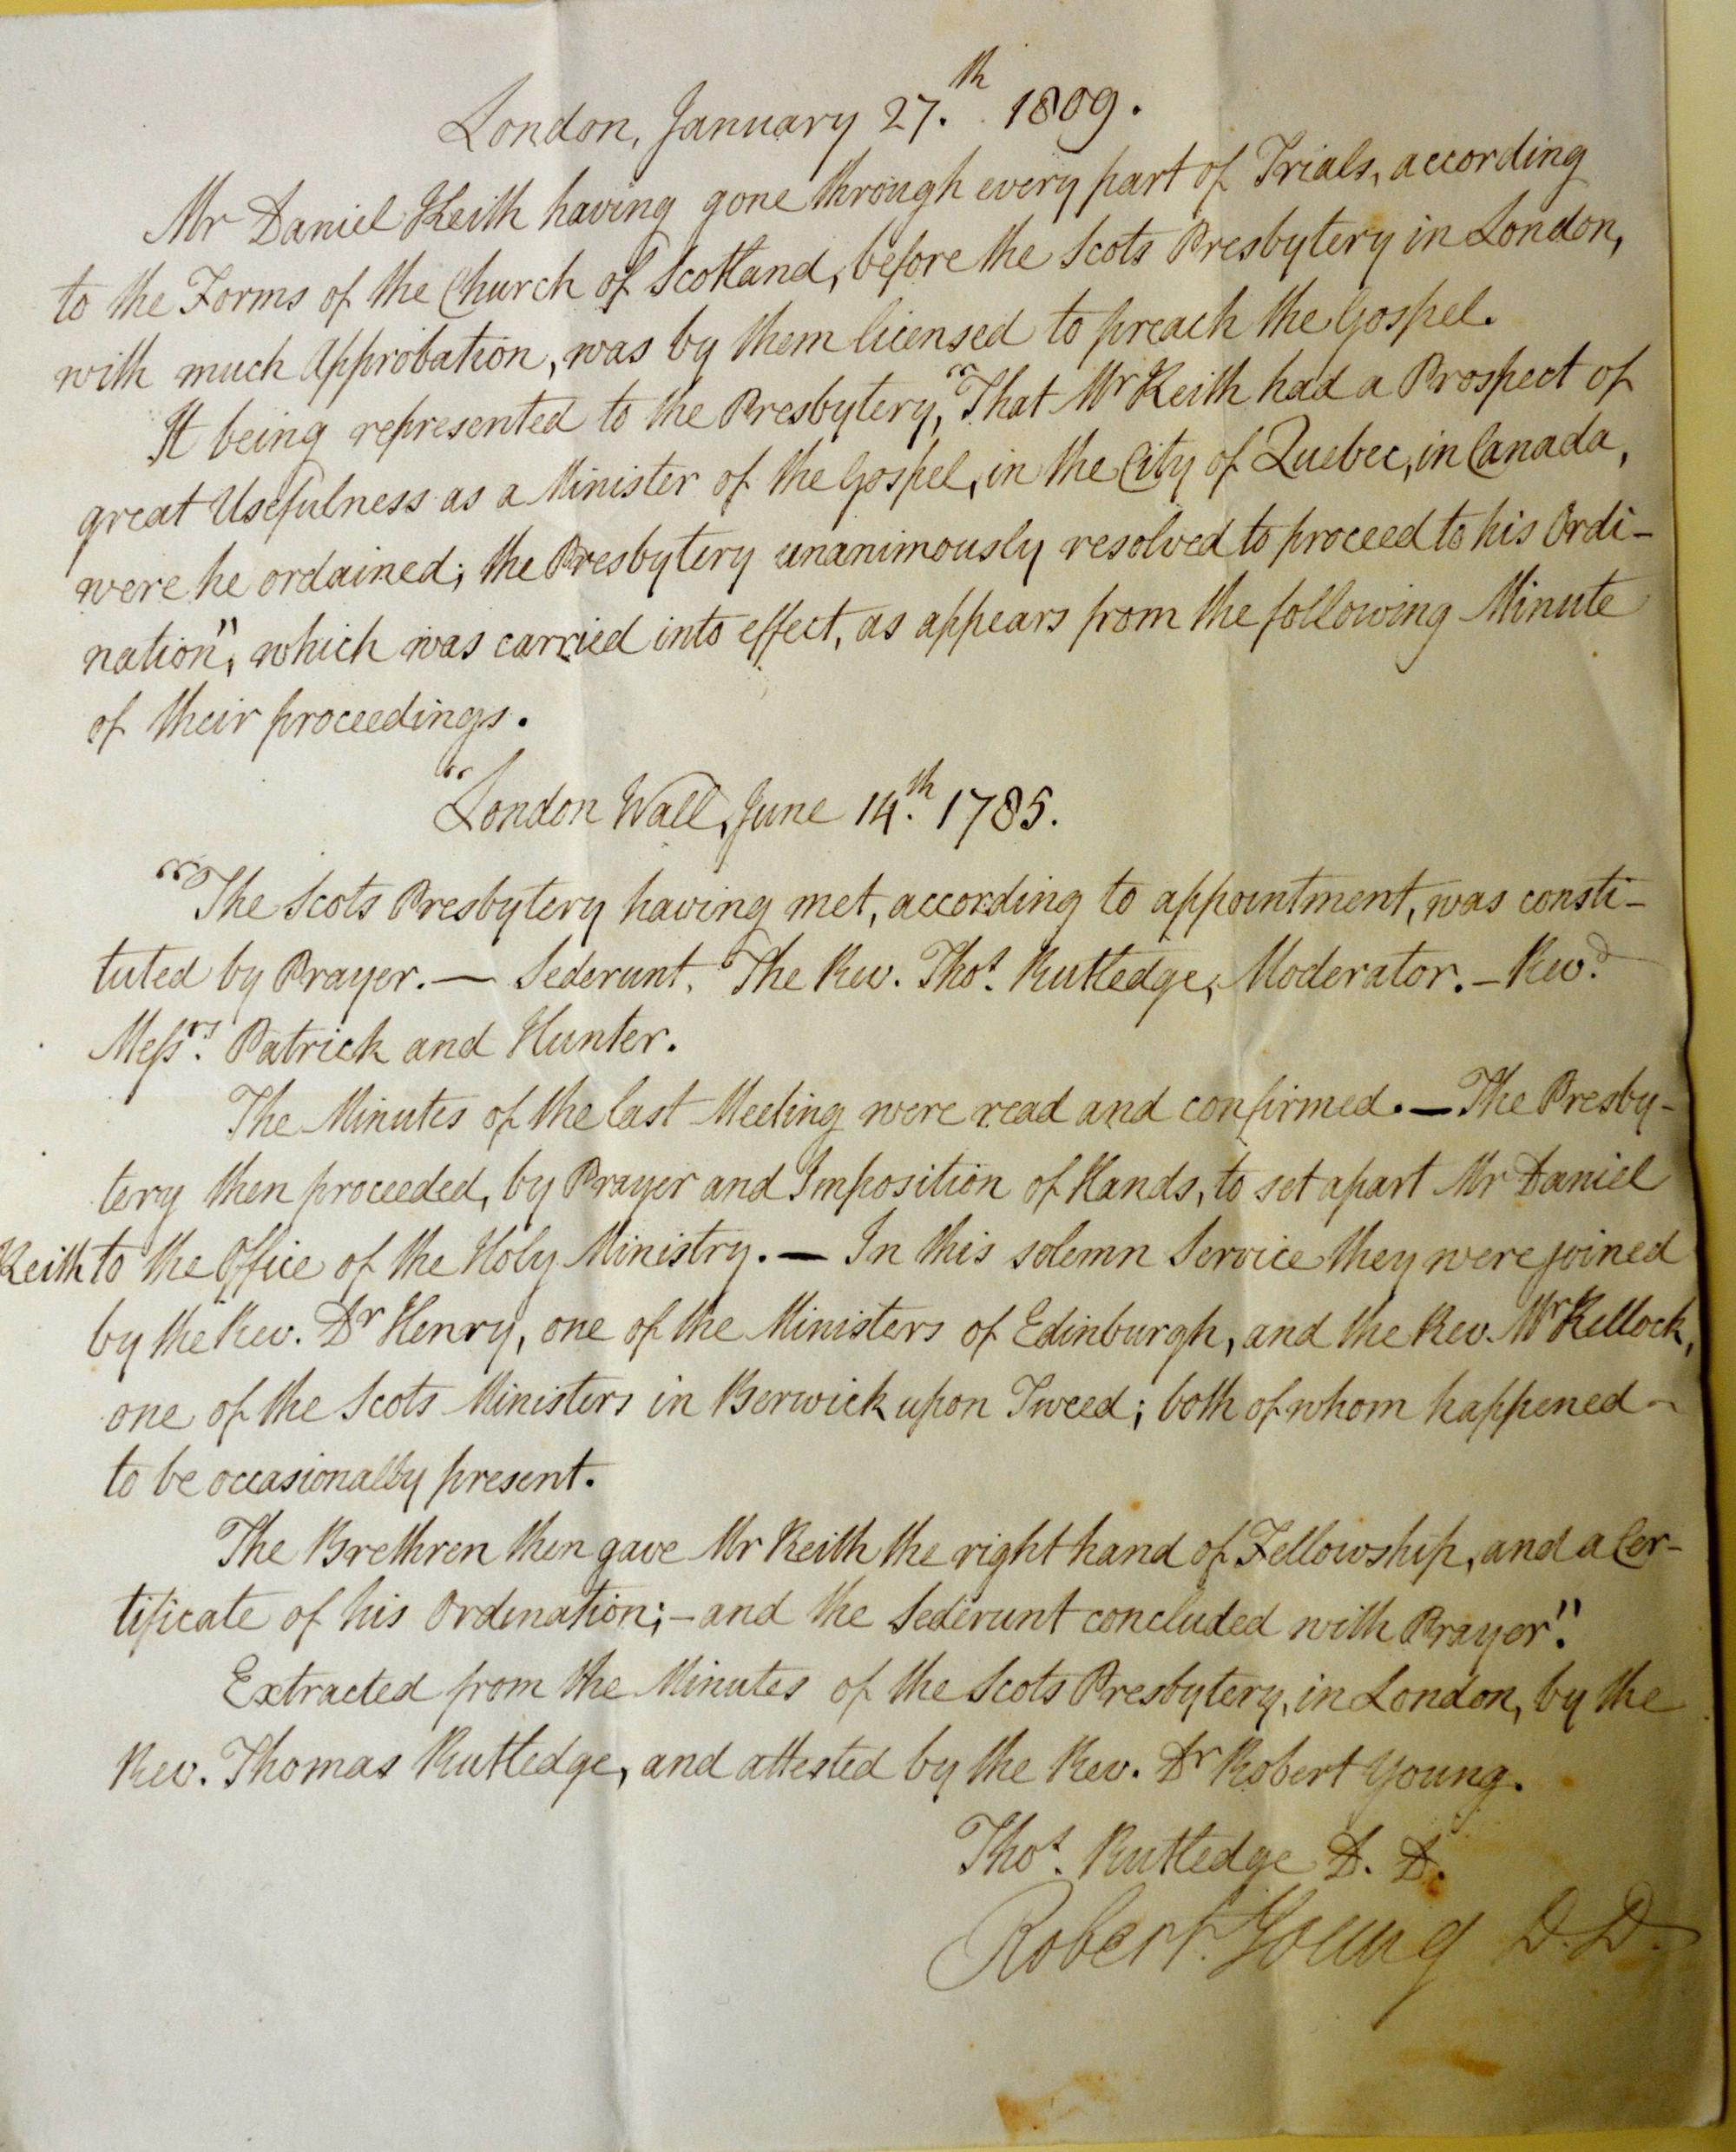 London, January 27.th 1809.
Mr Daniel Keith having gone through every part of Trials, according
to the Forms of the Church of Scotland, before the Scots Presbytery in London,
with much Approbation, was by them licensed to preach the Gospel.
It being represented to the Presbytery, "That Mr Keith had a Prospect of
great Usefulness as a Minister of the Gospel, in the City of Quebec, in Canada,
were he ordained; the Presbytery unanimously resolved to proceed to his Ordi-
nation", which was carried into effect, as appears from the following Minute
of their proceedings.
"London Wall, June 14.th 1785.
"The Scots Presbytery having met, according to appointment, was consti-
tuted by Prayer. — Sederunt. The Rev. Thos. Rutledge, Moderator. – Revd.
Messrs. Patrick and Hunter.
The Minutes of the last Meeting were read and confirmed. — The Presby-
tery then proceeded, by Prayer and Imposition of Hands, to set apart Mr Daniel
Keith to the Office of the Holy Ministry. — In this solemn Service they were joined
by the Rev. Dr Henry, one of the Ministers of Edinburgh, and the Rev. Mr Kellock,
one of the Scots Ministers in Berwick upon Tweed; both of whom happened
to be occasionally present.
The Brethren then gave Mr Keith the right hand of Fellowship, and a Cer-
tificate of his Ordination; – and the Sederunt concluded with Prayer".
Extracted from the Minutes of the Scots Presbytery, in London, by the
Rev. Thomas Rutledge, and attested by the Rev. Dr Robert Young.
Thos. Rutledge D. D.
Robert Young D. D.